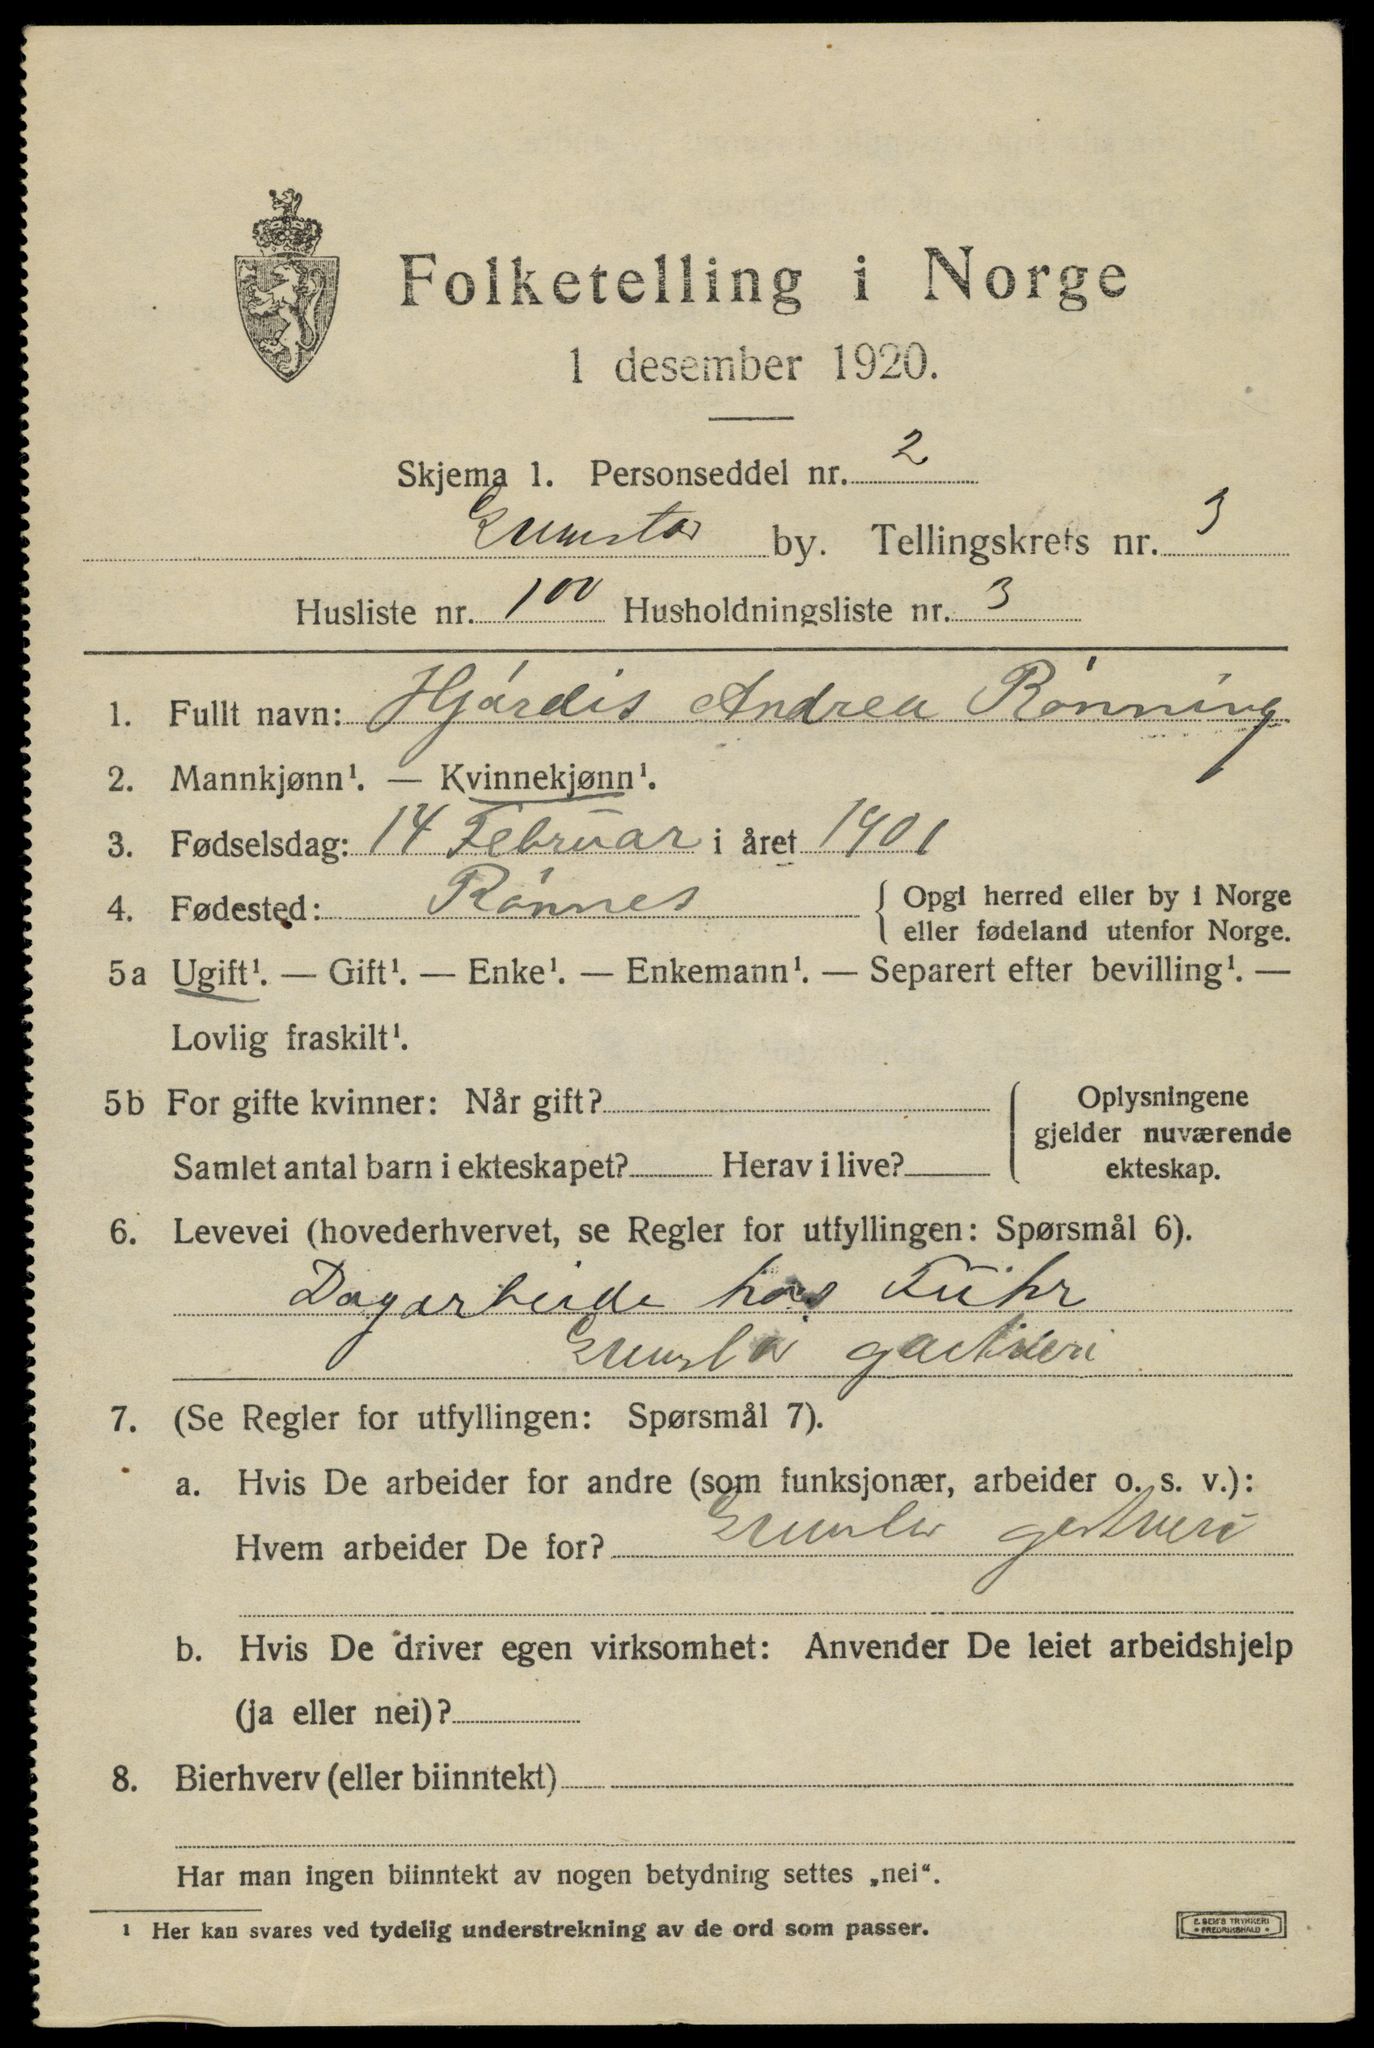 Folketelling i Norge
1 desember 1920.
Skjema 1. Personseddel nr. 2
Grimstad by. Tellingskrets nr. 3
Husliste nr. 100 Husholdningsliste nr. 3
1. Fullt navn: Hjørdis Andrea Rønning
2. Mannkjønn¹. — Kvinnekjønn¹.
3. Fødselsdag: 14 Februar i året 1901
4. Fødested: Rønnes { Opgi herred eller by i Norge
eller fødeland utenfor Norge.
5a Ugift¹. — Gift¹. — Enke¹. — Enkemann¹. — Separert efter bevilling¹. —
Lovlig fraskilt¹.
5b For gifte kvinner: Når gift? Oplysningene
gjelder nuværende
Samlet antal barn i ekteskapet? Herav i live? ekteskap.
6. Levevei (hovederhvervet, se Regler for utfyllingen: Spørsmål 6).
Dagarbeide hos Führ
Grimstad gartneri
7. (Se Regler for utfyllingen: Spørsmål 7).
a. Hvis De arbeider for andre (som funksjonær, arbeider o. s. v.):
Hvem arbeider De for? Grimstad gartneri
b. Hvis De driver egen virksomhet: Anvender De leiet arbeidshjelp
(ja eller nei)?
8. Bierhverv (eller biinntekt)
Har man ingen biinntekt av nogen betydning settes „nei“.
¹ Her kan svares ved tydelig understrekning av de ord som passer.
E. SEM'S TRYKKERI
FREDRIKSHALD